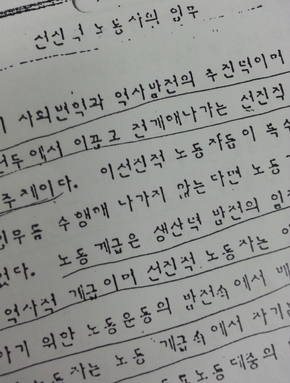 선진적 노동자의 임무
사회변혁과 역사발전의 추진력이며
에서 이끌고 전개해나가는 선진적
주체이다. 이선진적 노동자들이 목숙
임무를 수행해 나가지 않는다면 노동
었다. 노동계급은 생산력 발전의 임
역사적 계급이며 선진적 노동자는 이
하기 위한 노동운동의 발전속에서 배
노동자는 노동 계급속에서 자기
노동대중의